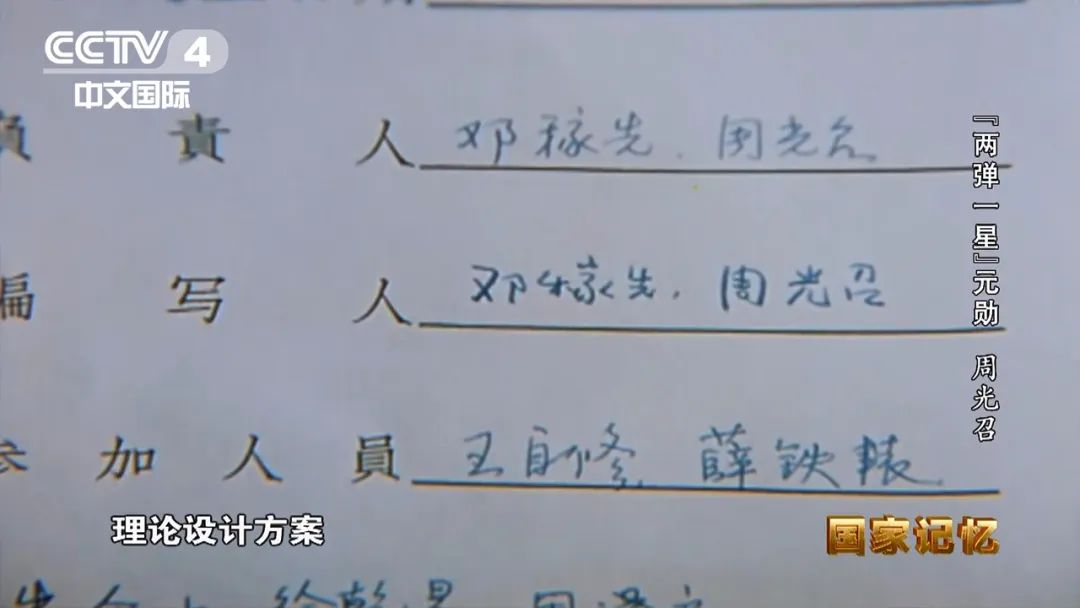 CCTV 4
中文国际
負責人 邓稼先、周光召
编写人 邓稼先、周光召
参加人員 王自修 薛铁辕
理论设计方案
国家记忆
『两弹一星』元勋 周光召